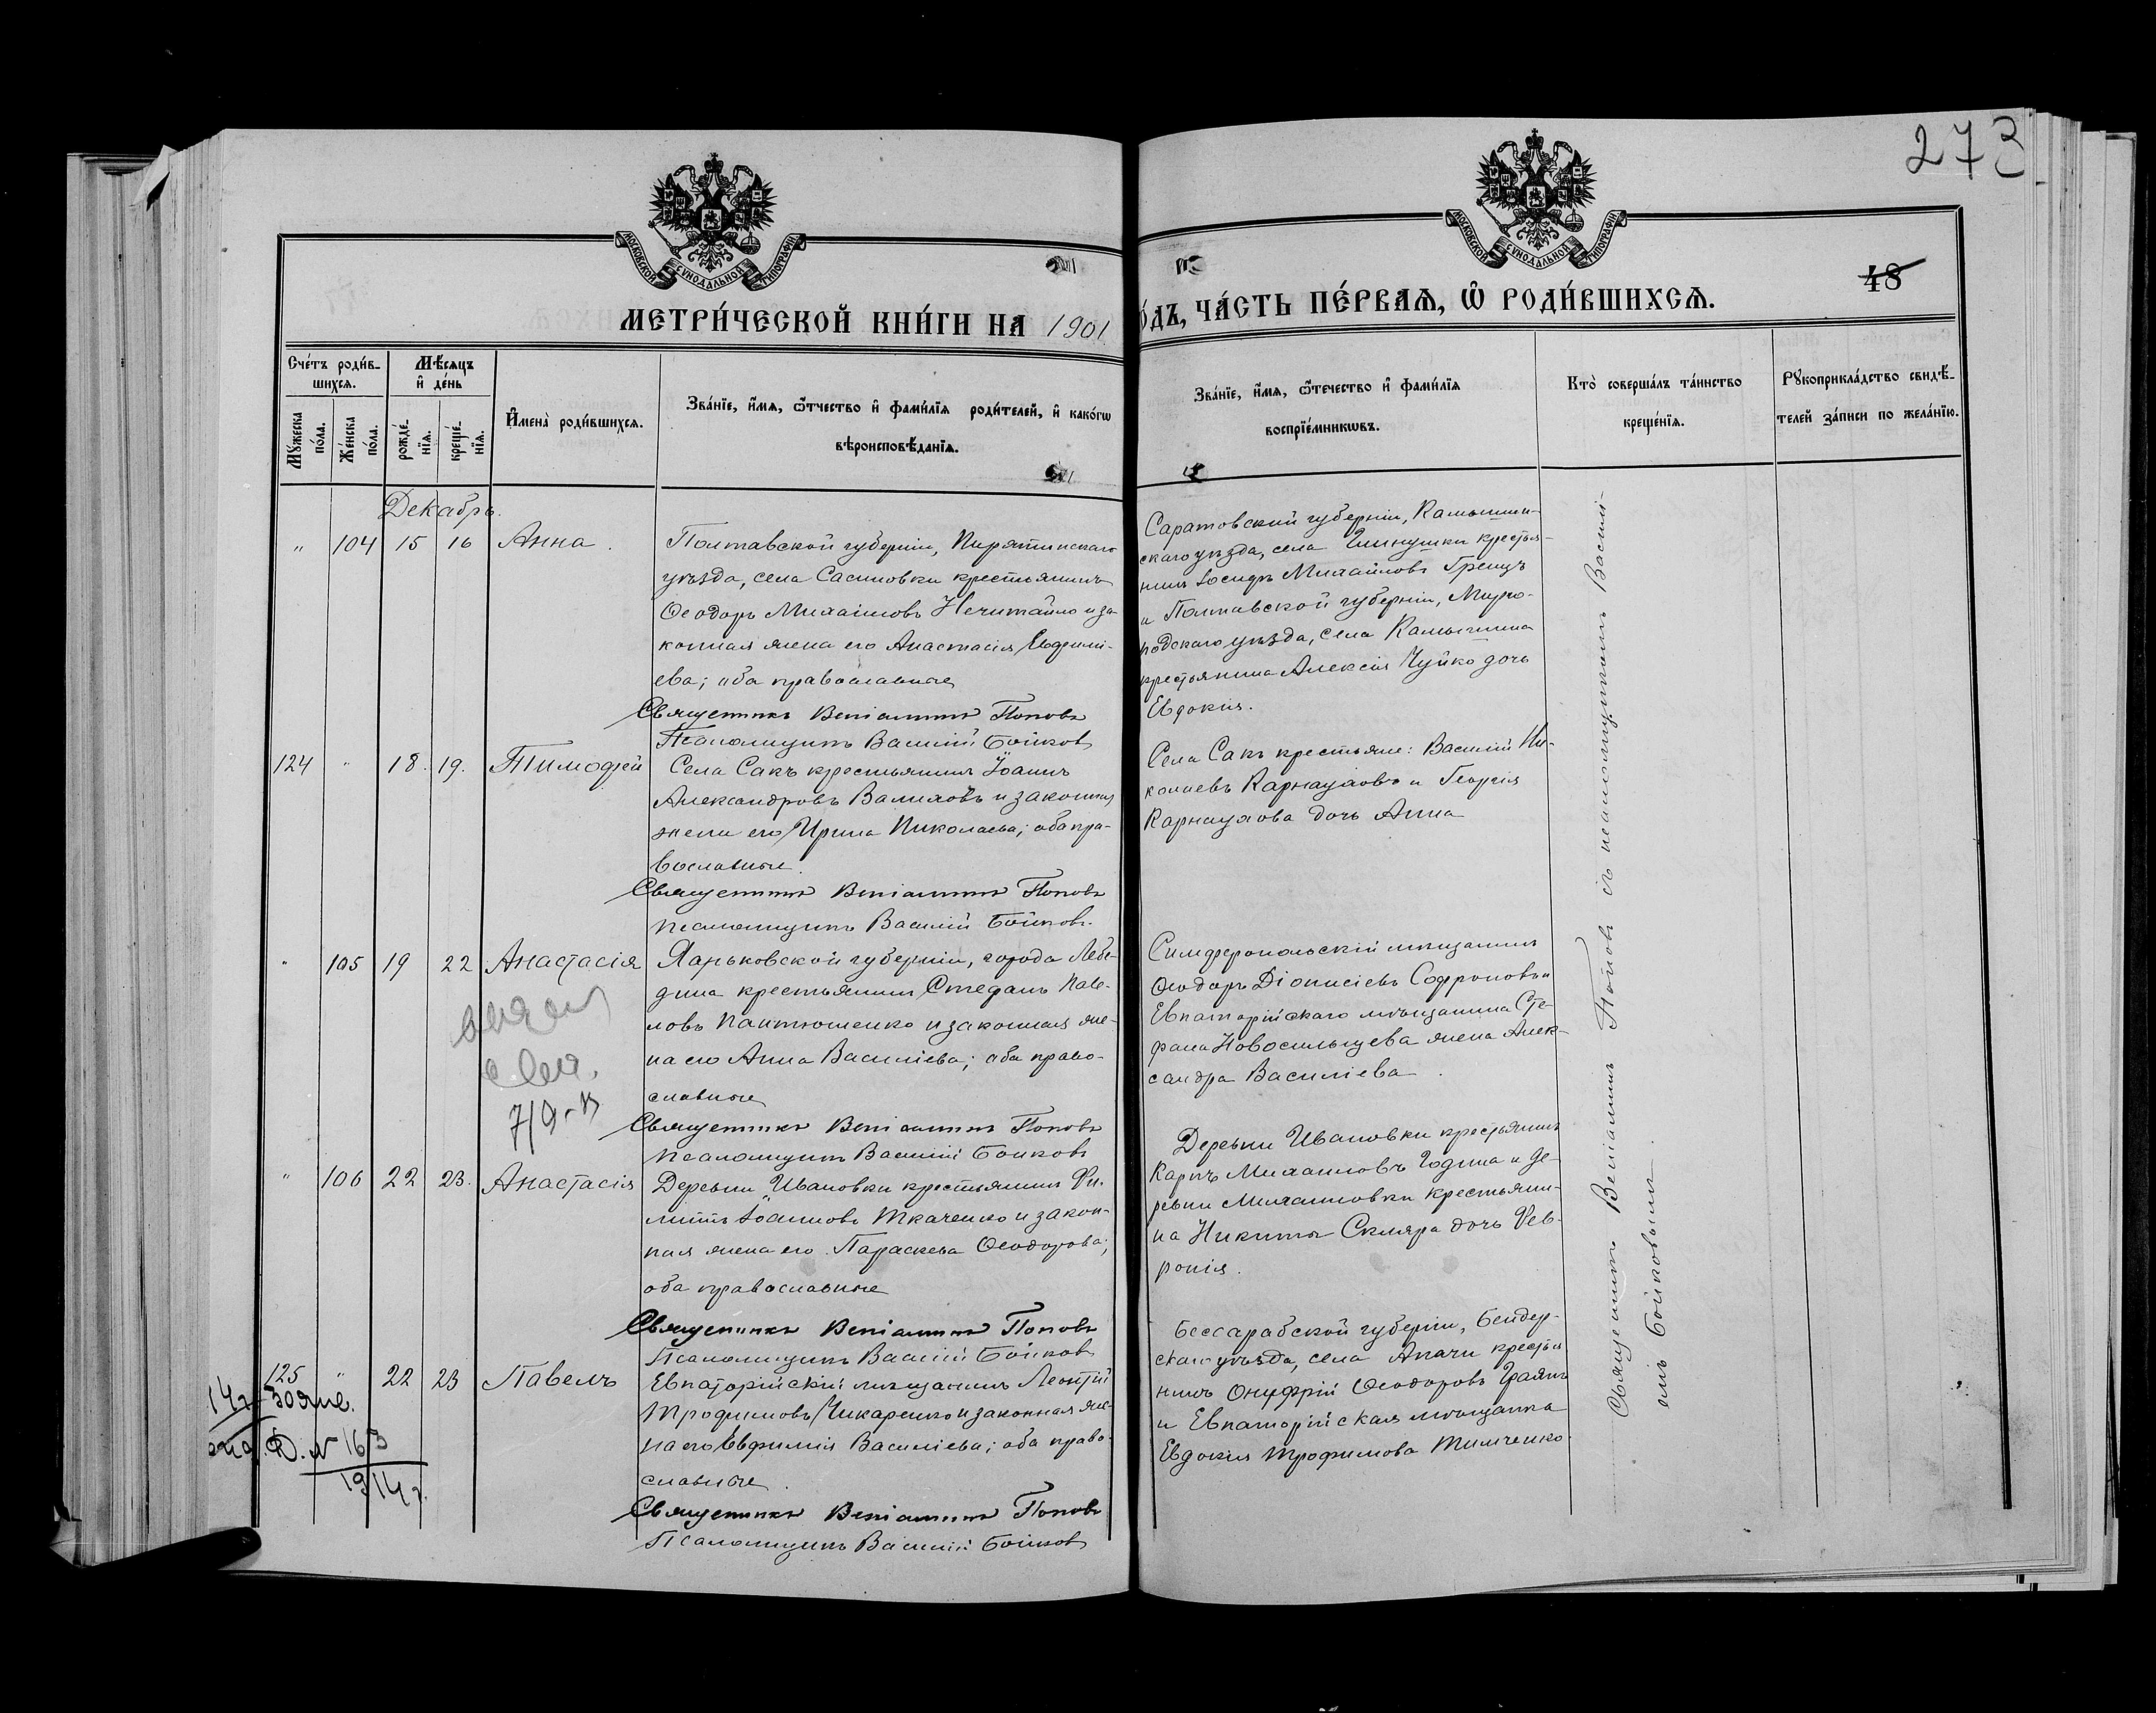 273
МОСКОВСКОЙ СУНОДАЛЬНОЙ ТИПОГРАФІИ
МОСКОВСКОЙ СУНОДАЛЬНОЙ ТИПОГРАФІИ
48
МЕТРИ́ЧЕСКОЙ КНИ́ГИ НА 1901
О́ДЪ, ЧА́СТЬ ПЕ́РВАѦ, Ѡ҆ РОДИ́ВШИХСѦ.
Сче́тъ роди́в-
шихся.
Мꙋжеска
по́ла.
Же́нска
по́ла.
Мѣ́сяцъ
и҆ де́нь
рожде́-
нїѧ.
креще́-
нїѧ.
И҆мена̀ роди́вшихся.
Зва́нїе, и҆́мѧ, ѻ҆́тчество и҆ фами́лїѧ роди́телей, и҆ како́гѡ
вѣроисповѣ́данїѧ.
Зва́нїе, и҆́мѧ, ѻ҆те́чество и҆ фами́лїѧ
воспрїе́мникѡвъ.
Кто̀ соверша́лъ та́инство
креще́нїѧ.
Рꙋкоприкла́дство свидѣ́-
телей за́писи по жела́нїю.
Декабрь.
" 104 15 16 Анна.
Полтавской губерніи, Пирятинскаго
уѣзда, села Сасиновки крестьянинъ
Ѳеодоръ Михаиловъ Нечитайло и за-
конная жена его Анастасія Евфимі-
ева; оба православные
Священникъ Веніаминъ Поповъ
Псаломщикъ Василій Бойковъ
Саратовской губерніи, Камышин-
скаго уѣзда, села крестья-
нинъ Іосифъ Михайловъ Грецъ
и Полтавской губерніи, Мирго-
родскаго уѣзда, села Камышина
крестьянина Алексія Чуйко дочь
Евдокія.
124 " 18. 19. Тимофей
Села Сакъ крестьянинъ Іоаннъ
Александровъ Валиховъ и законная
жена его Ирина Николаева; оба пра-
вославные.
Священникъ Веніаминъ Поповъ
Псаломщикъ Василій Бойковъ.
Села Сакъ крестьяне: Василій Ни-
колаевъ Карнауховъ и Георгія
Карнаухова дочь Анна
" 105 19 22 Анастасія
Харьковской губерніи, города Лебе-
дина крестьянинъ Стефанъ Паве-
ловъ Пантюшенко и законная же-
на его Анна Василіева; оба право-
славные
Священникъ Веніаминъ Поповъ
Псаломщикъ Василій Бойковъ
Симферопольскій мѣщанинъ
Ѳеодоръ Діонисіевъ Софроновъ и
Евпаторійскаго мѣщанина Сте-
фана Новосильцева жена Алек-
сандра Василіева.
" 106 22 23. Анастасія
Деревни Ивановки крестьянинъ Фи-
липпъ Іоанновъ Ткаченко и закон-
ная жена его Параскева Ѳеодорова;
оба православные
Священникъ Веніаминъ Поповъ
Псаломщикъ Василій Бойковъ
Деревни Ивановки крестьянинъ
Карпъ Михаиловъ Година и де-
ревни Михаиловки крестьяни-
на Никиты Скляра дочь Фев-
ронія.
125 " 22 23 Павелъ
Евпаторійскій мѣщанинъ Леонтій
Трофимовъ Чикаренко и законная же-
на его Евфимія Василіева; оба право-
славные.
Священникъ Веніаминъ Поповъ
Псаломщикъ Василій Бойковъ
Бессарабской губерніи, Бендер-
скаго уѣзда, села крестья-
нинъ Онуфрій Ѳеодоровъ
и Евпаторійская мѣщанка
Евдокія Трофимова Тимченко.
Д. № 163
1914 г.
Священникъ Веніаминъ Поповъ съ псаломщикомъ Василі-
емъ Бойковымъ.